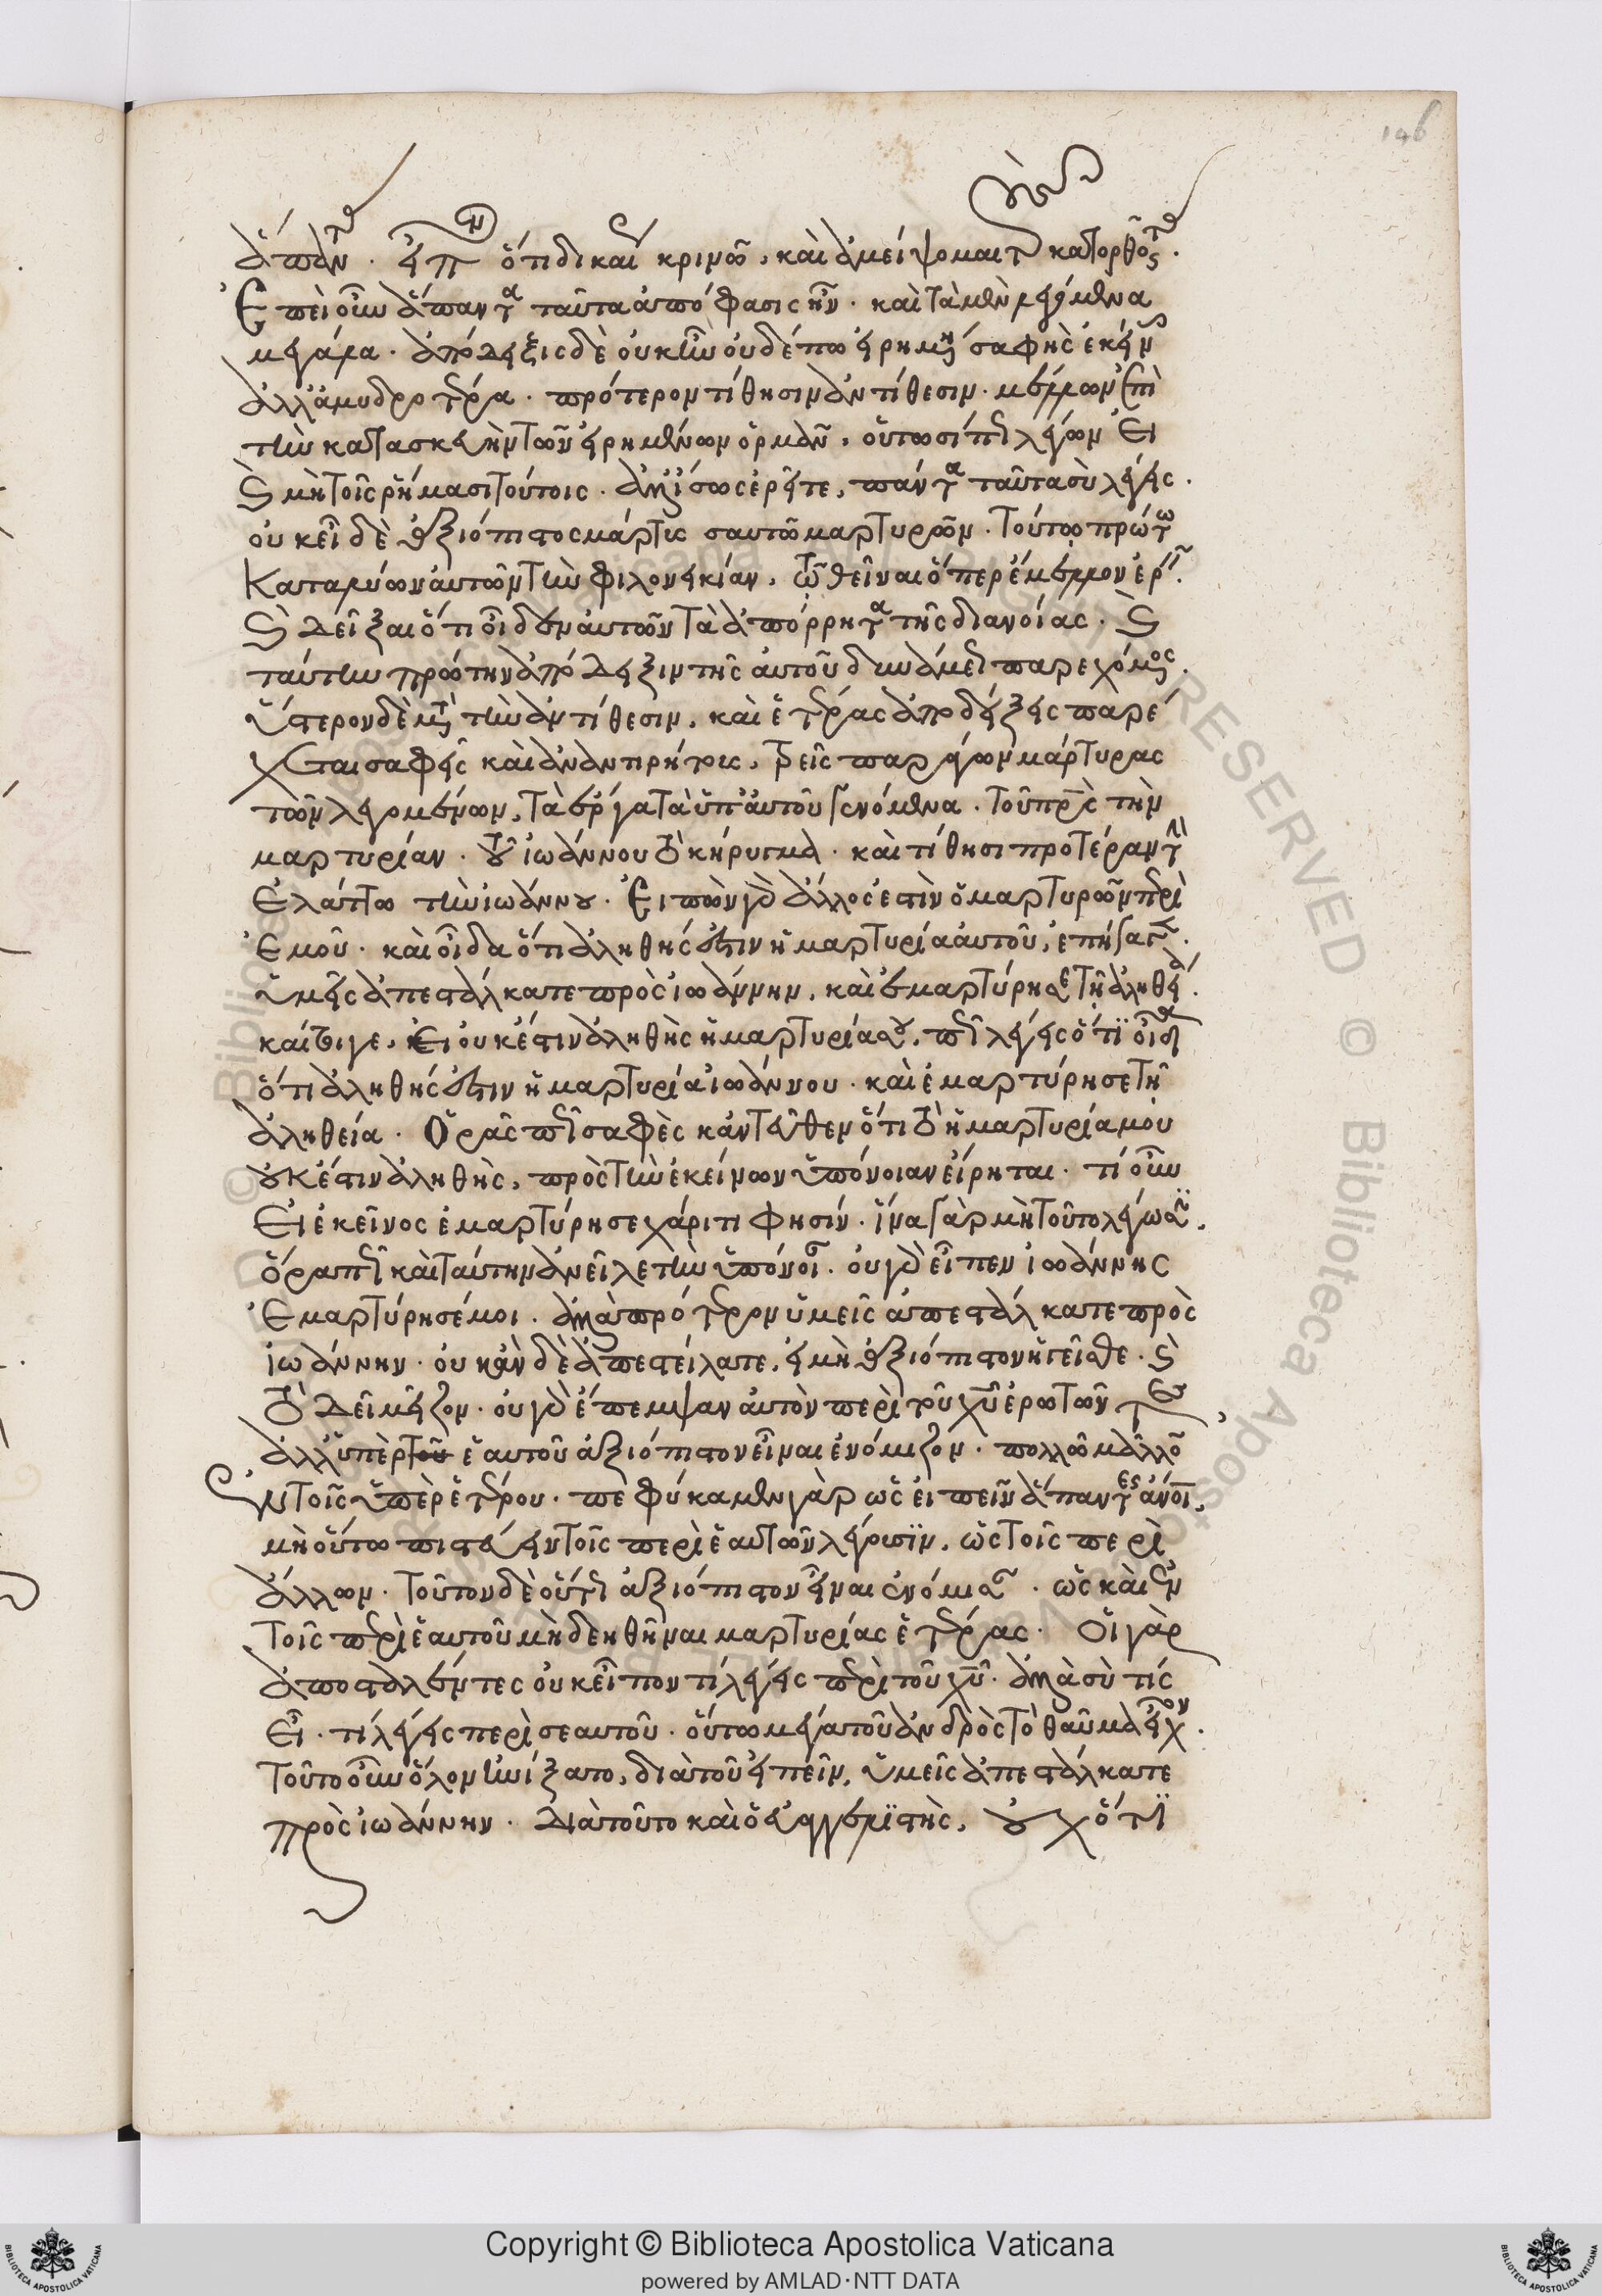 146
ἁπάντων. εἰπὼν ὅτι δικαίως κρινῶ, καὶ ἀμείψομαι τοὺς κατορθοῦντας.
Ἐπεὶ οὖν ἅπαντα ταῦτα ἀπόφασις ἦν. καὶ τὰ μὲν λεγόμενα
μεγάλα. ἀπόδειξις δὲ οὐκ ἦν οὐδέπω εἰρημένη σαφὴς ἐκείνοις
ἀλλ' ἀμυδροτέρα. πρότερον τίθησιν ἀντίθεσιν. μέλλων ἐπὶ
τὴν κατασκευὴν τῶν εἰρημένων ὁρμᾶν. οὕτωσί πως λέγων εἰ
καὶ μὴ τοῖς ῥήμασι τούτοις. ἀλλ' ἴσως ἐρεῖτε, πάντα ταῦτα σὺ λέγεις.
οὐκ εἶ δὲ ἀξιόπιστος μάρτυς σαυτῶ μαρτυρῶν. τούτω πρώτω
καταλύων αὐτῶν τὴν φιλονεικίαν, τῶ θεῖναι ὅπερ ἔμελλον ἐρεῖν.
καὶ δεῖξαι ὅτι οἶδεν αὐτῶν τὰ ἀπόρρητα τῆς διανοίας. καὶ
ταύτην πρώτην ἀπόδειξιν τῆς αὐτοῦ δυνάμεως παρεχόμενος.
ὕστερον δὲ μετὰ τὴν ἀντίθεσιν, καὶ ἑτέρας ἀποδείξεις παρέ
χεται σαφεῖς καὶ ἀναντιρήτους, τρεῖς παράγων μάρτυρας
τῶν λεγομένων, τὰ ἔργα τὰ ὑπ' αὐτοῦ γενόμενα. τοῦ πρς τὴν
μαρτυρίαν. τοῦ ἰωάννου τὸ κήρυγμα. καὶ τίθησι προτέραν τὴν
ἐλάττω τὴν ἰωάννου. Εἰπὼν γὰρ ἄλλος ἐστὶν ὁ μαρτυρῶν περὶ
ἐμοῦ. καὶ οἶδα ὅτι ἀληθής ἐστιν ἡ μαρτυρία αὐτοῦ, ἐπήγαγεν.
ὑμεῖς ἀπεστάλκατε πρὸς ἰωάννην, καὶ ἐμαρτύρησε τῆ ἀληθεία.
καίτοιγε, εἰ οὐκ ἔστιν ἀληθὴς ἡ μαρτυρία σου, πῶς λέγεις ὅτι οἶδα
ὅτι ἀληθής ἐστιν ἡ μαρτυρία ἰωάννου. καὶ ἐμαρτύρησε τῆ
ἀληθεία. Ὁρᾶς πῶς σαφὲς κἀντεῦθεν ὅτι τὸ ἡ μαρτυρία μου
οὐκ ἔστιν ἀληθὴς, πρὸς τὴν ἐκείνων ὑπόνοιαν εἴρηται. τί οὖν
εἰ ἐκεῖνος ἐμαρτύρησε χάριτι φησίν. ἵνα γὰρ μὴ τοῦτο λέγωσιν.
ὅρα πῶς καὶ ταύτην ἀνεῖλε τὴν ὑπόνοιαν. οὐ γὰρ εἶπεν ἰωάννης
ἐμαρτύρησέ μοι. ἀλλὰ πρότερον ὑμεῖς ἀπεστάλκατε πρὸς
ἰωάννην. οὐκ ἂν δὲ ἀπεστείλατε, εἰ μὴ ἀξιόπιστον ἡγεῖσθε. καὶ
τὸ δεῖ μεῖζον. οὐ γὰρ ἔπεμψαν αὐτὸν περὶ τοῦ χῦ ἐρωτῶντες
ἀλλ' ὑπὲρ τοῦ ἑαυτοῦ ἀξιόπιστον εἶναι ἐνόμιζον. πολλῶ μᾶλλον
ἐν τοῖς ὑπὲρ ἑτέρου. πεφύκαμεν γὰρ ὡς εἰπεῖν ἅπαντες ἄνοι,
μὴ οὕτω πιστεύειν τοῖς περὶ ἑαυτῶν λέγουσιν, ὡς τοῖς περὶ
ἄλλων. τοῦτον δὲ οὕτως ἀξιόπιστον εἶναι ἐνόμισαν. ὡς καὶ ἐν
τοῖς περὶ ἑαυτοῦ μὴ δεηθῆναι μαρτυρίας ἑτέρας. Οἱ γὰρ
ἀποσταλέντες οὐκ εἶπον τί λέγεις περὶ τοῦ χῦ. ἀλλὰ σὺ τίς
εἶ. τί λέγεις περὶ σεαυτοῦ. οὕτω μέγα τοῦ ἀνδρὸς τὸ θαῦμα εἶχον.
τοῦτο οὖν ὅλον ἠνίξατο, διὰ τοῦ εἰπεῖν, ὑμεῖς ἀπεστάλκατε
πρὸς ἰωάννην. Διὰ τοῦτο καὶ ὁ εὐαγγελιστὴς, οὐχ ὅτι
Copyright © Biblioteca Apostolica Vaticana
powered by AMLAD·NTT DATA